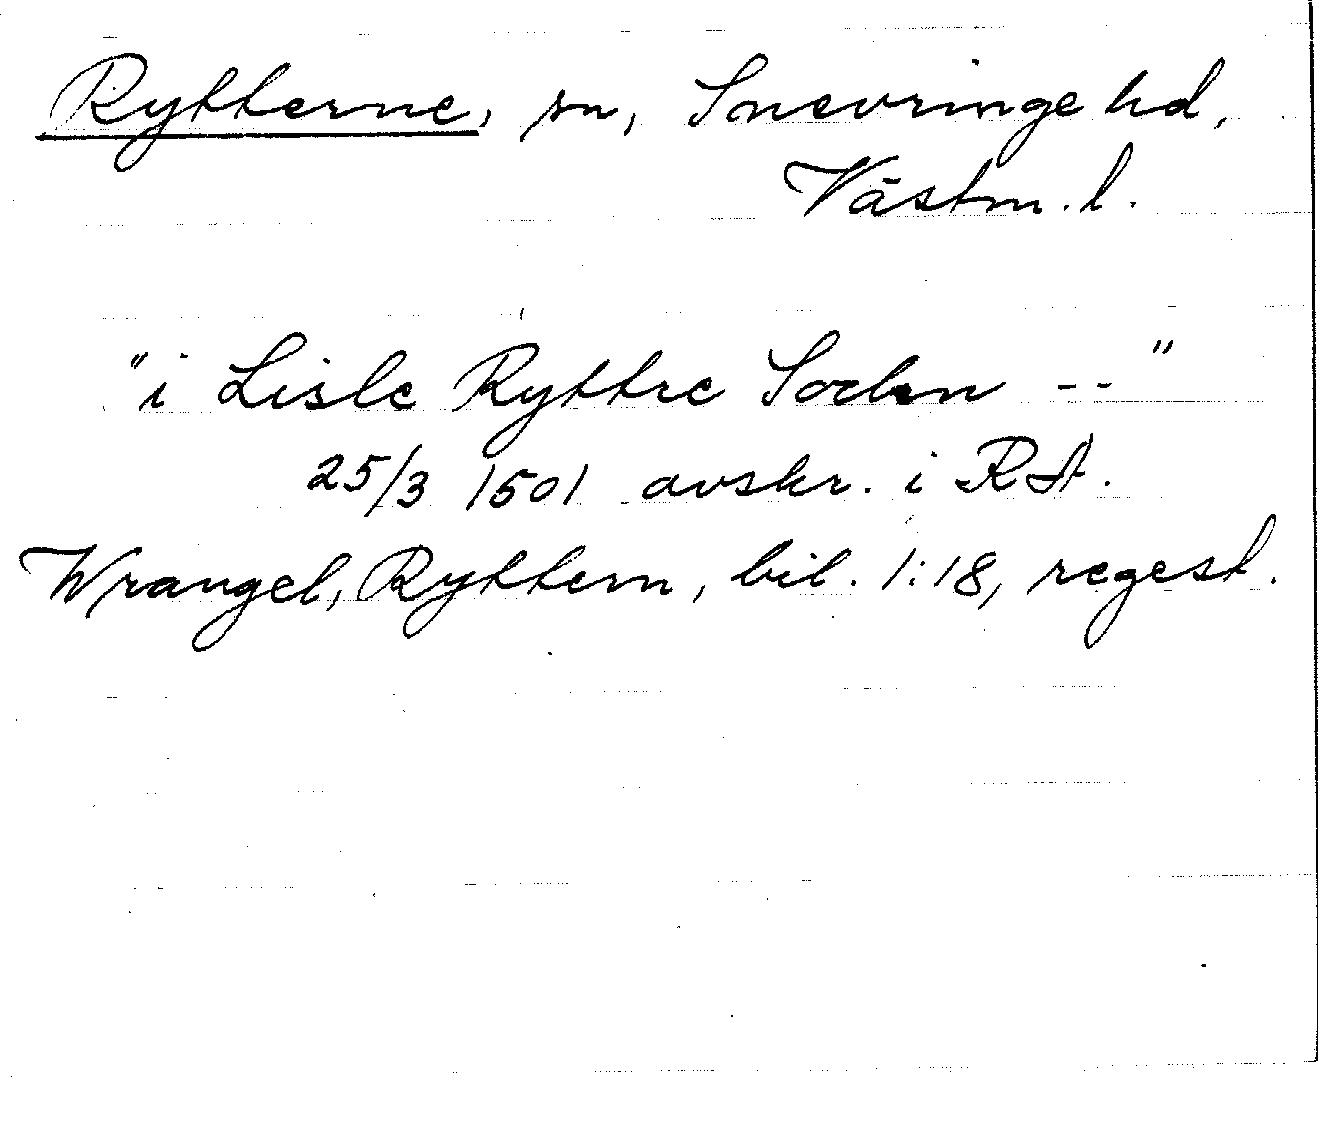 Rytterne, sn, Snevringe hd,
Västm. l.
"i Lisle Ryttre Sockn -- "
25/3 1501 avskr. i RA.
Wrangel, Ryttern, bil. 1:18, regest.